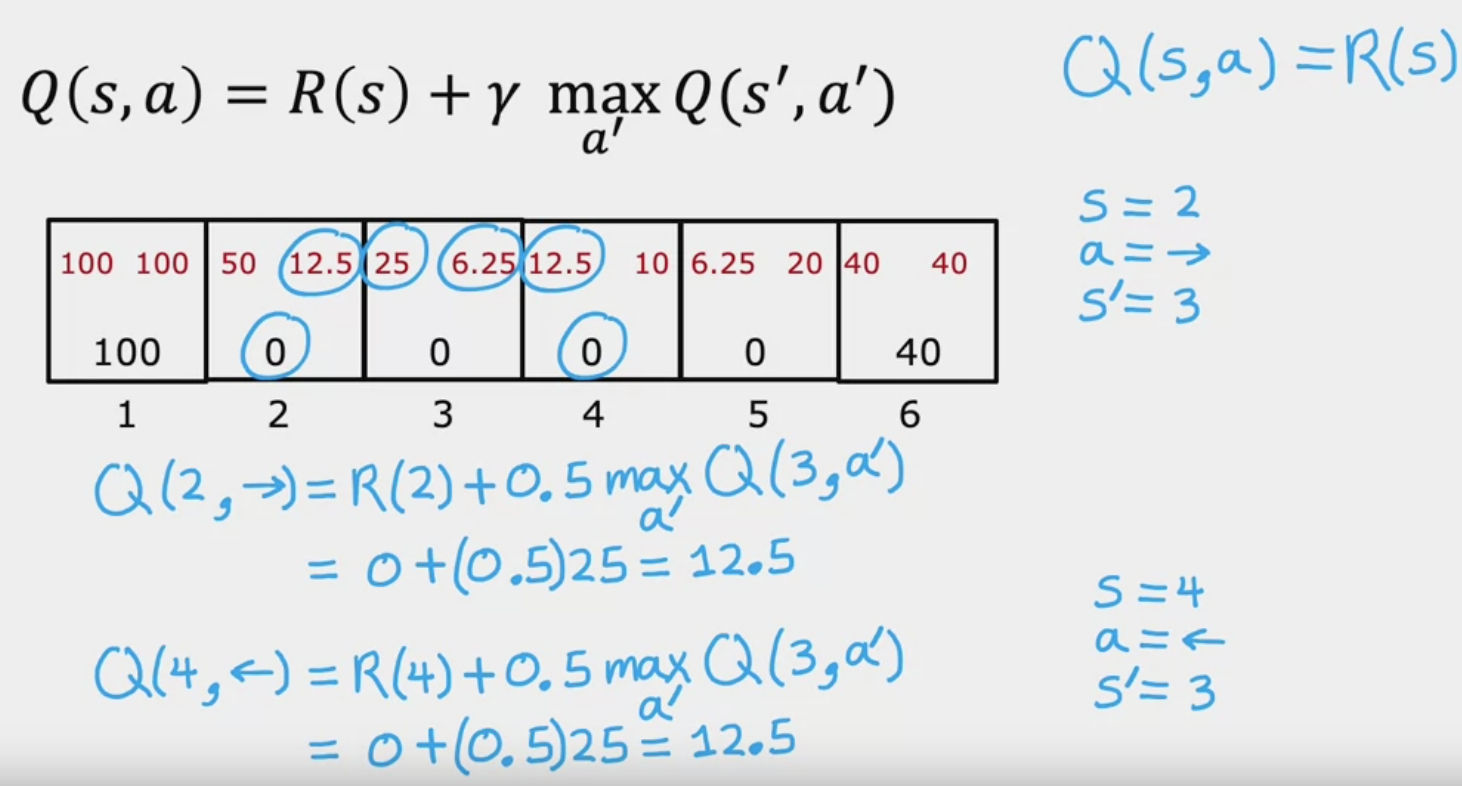 Q(s, a) = R(s) + γ max Q(s′, a′)
a′
Q(s,a) = R(s)
s = 2
a = →
s′ = 3
100 100 50 12.5 25 6.25 12.5 10 6.25 20 40 40
100 0 0 0 0 40
1 2 3 4 5 6
Q(2,→) = R(2) + 0.5 max Q(3,a′)
a′
= 0 + (0.5)25 = 12.5
s = 4
a = ←
s′ = 3
Q(4,←) = R(4) + 0.5 max Q(3,a′)
a′
= 0 + (0.5)25 = 12.5